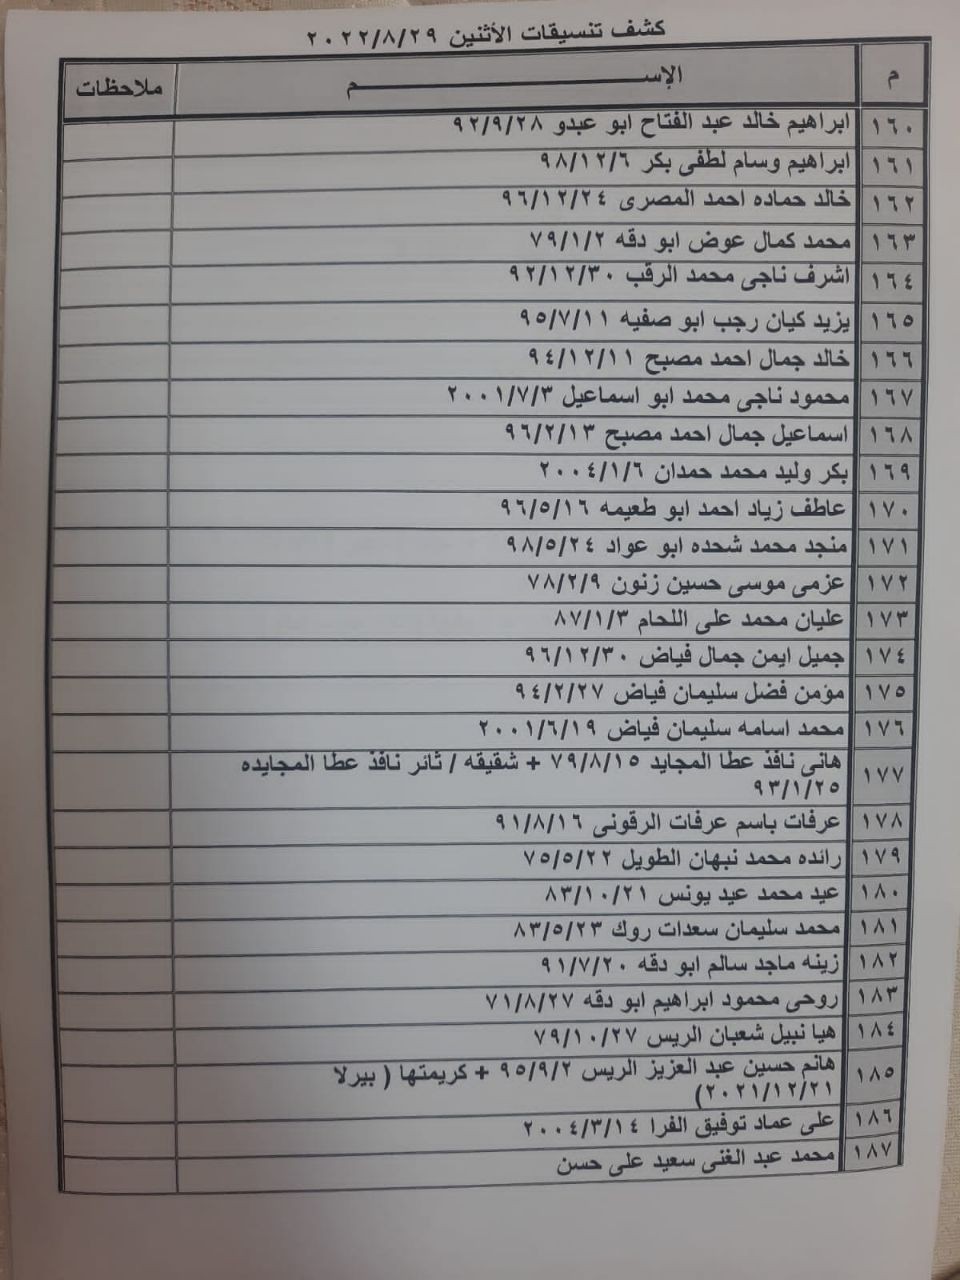 كشف تنسيقات الأثنين ٢٠٢٢/٨/٢٩
م الإســـــــــــــم ملاحظات
١٦٠ ابراهيم خالد عبد الفتاح ابو عبدو ٩٢/٩/٢٨
١٦١ ابراهيم وسام لطفى بكر ٩٨/١٢/٦
١٦٢ خالد حماده احمد المصرى ٩٦/١٢/٢٤
١٦٣ محمد كمال عوض ابو دقه ٧٩/١/٢
١٦٤ اشرف ناجى محمد الرقب ٩٢/١٢/٣٠
١٦٥ يزيد كيان رجب ابو صفيه ٩٥/٧/١١
١٦٦ خالد جمال احمد مصبح ٩٤/١٢/١١
١٦٧ محمود ناجى محمد ابو اسماعيل ٢٠٠١/٧/٣
١٦٨ اسماعيل جمال احمد مصبح ٩٦/٢/١٣
١٦٩ بكر وليد محمد حمدان ٢٠٠٤/١/٦
١٧٠ عاطف زياد احمد ابو طعيمه ٩٦/٥/١٦
١٧١ منجد محمد شحده ابو عواد ٩٨/٥/٢٤
١٧٢ عزمى موسى حسين زنون ٧٨/٢/٩
١٧٣ عليان محمد على اللحام ٨٧/١/٣
١٧٤ جميل ايمن جمال فياض ٩٦/١٢/٣٠
١٧٥ مؤمن فضل سليمان فياض ٩٤/٢/٢٧
١٧٦ محمد اسامه سليمان فياض ٢٠٠١/٦/١٩
١٧٧ هانى نافذ عطا المجايد ٧٩/٨/١٥ + شقيقه / ثائر نافذ عطا المجايده
٩٣/١/٢٥
١٧٨ عرفات باسم عرفات الرقونى ٩١/٨/١٦
١٧٩ رائده محمد نبهان الطويل ٧٥/٥/٢٢
١٨٠ عيد محمد عيد يونس ٨٣/١٠/٢١
١٨١ محمد سليمان سعدات روك ٨٣/٥/٢٣
١٨٢ زينه ماجد سالم ابو دقه ٩١/٧/٢٠
١٨٣ روحى محمود ابراهيم ابو دقه ٧١/٨/٢٧
١٨٤ هيا نبيل شعبان الريس ٧٩/١٠/٢٧
١٨٥ هانم حسين عبد العزيز الريس ٩٥/٩/٢ + كريمتها ( بيرلا
٢٠٢١/١٢/٢١)
١٨٦ على عماد توفيق الفرا ٢٠٠٤/٣/١٤
١٨٧ محمد عبد الغنى سعيد على حسن